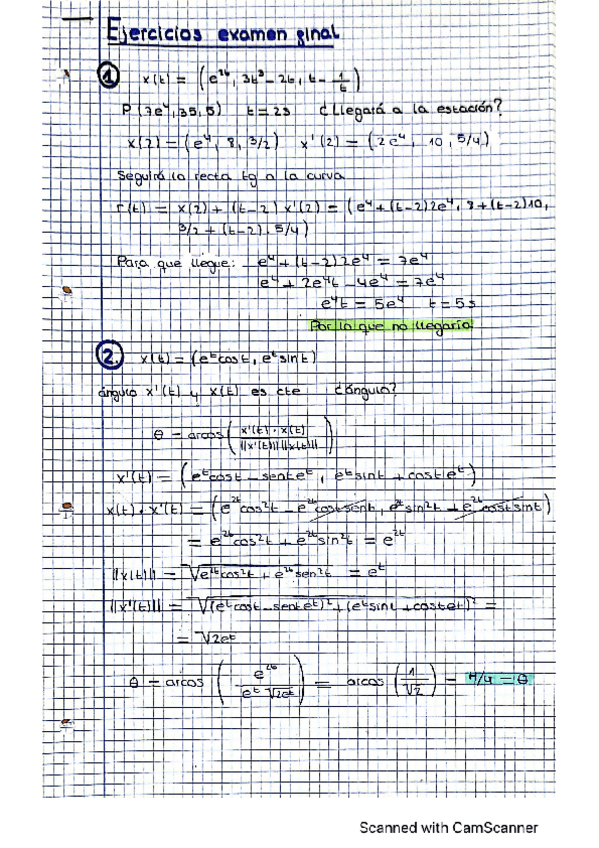 Ejercicios examen final
① x(t) = (e^2t, 3t³ - 2t, t - 1/t)
P(7e⁴, 35, 5) t = 2s ¿Llegará a la estación?
x(2) = (e⁴, 8, 3/2) x'(2) = (2e⁴, 10, 5/4)
Seguirá la recta tg a la curva
r(t) = x(2) + (t-2) x'(2) = (e⁴ + (t-2)2e⁴, 8 + (t-2)10,
3/2 + (t-2)·5/4)
Para que llegue: e⁴ + (t-2)2e⁴ = 7e⁴
e⁴ + 2e⁴t - 4e⁴ = 7e⁴
e⁴t = 5e⁴ t = 5s
Por lo que no llegaría
②. x(t) = (e^t cost, e^t sint)
ángulo x'(t) y x(t) es cte ¿ángulo?
θ = arcos (x'(t)·x(t) / ||x'(t)|| ||x(t)||)
x'(t) = (e^t cost - sent e^t, e^t sint + cost e^t)
x(t)·x'(t) = (e^2t cos²t - e^2t cost sent, e^2t sin²t + e^2t cost sint)
= e^2t cos²t + e^2t sin²t = e^2t
||x(t)|| = √e^2t cos²t + e^2t sen²t = e^t
||x'(t)|| = √(e^t cost - sent e^t)² + (e^t sint + cost e^t)² =
= √2e^t
θ = arcos (e^2t / e^t √2e^t) = arcos (1/√2) = π/4 = θ
Scanned with CamScanner